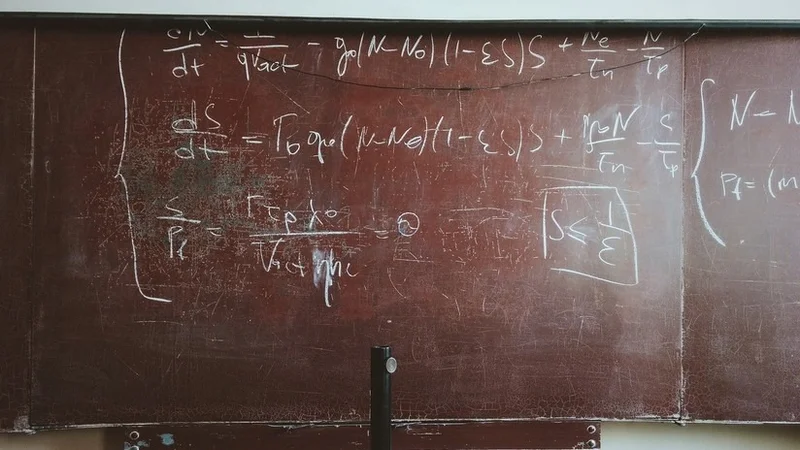 dN/dt = I/qVact - g₀(N-N₀)(1-εS)S + Ne/τn - N/τp
dS/dt = Γ₀g₀(N-N₀)(1-εS)S + N/τn - S/τp
S/Pf = Γτpλ₀/Vactηhc = ϑ
S ≤ 1/ε
N - N
Pf = (m